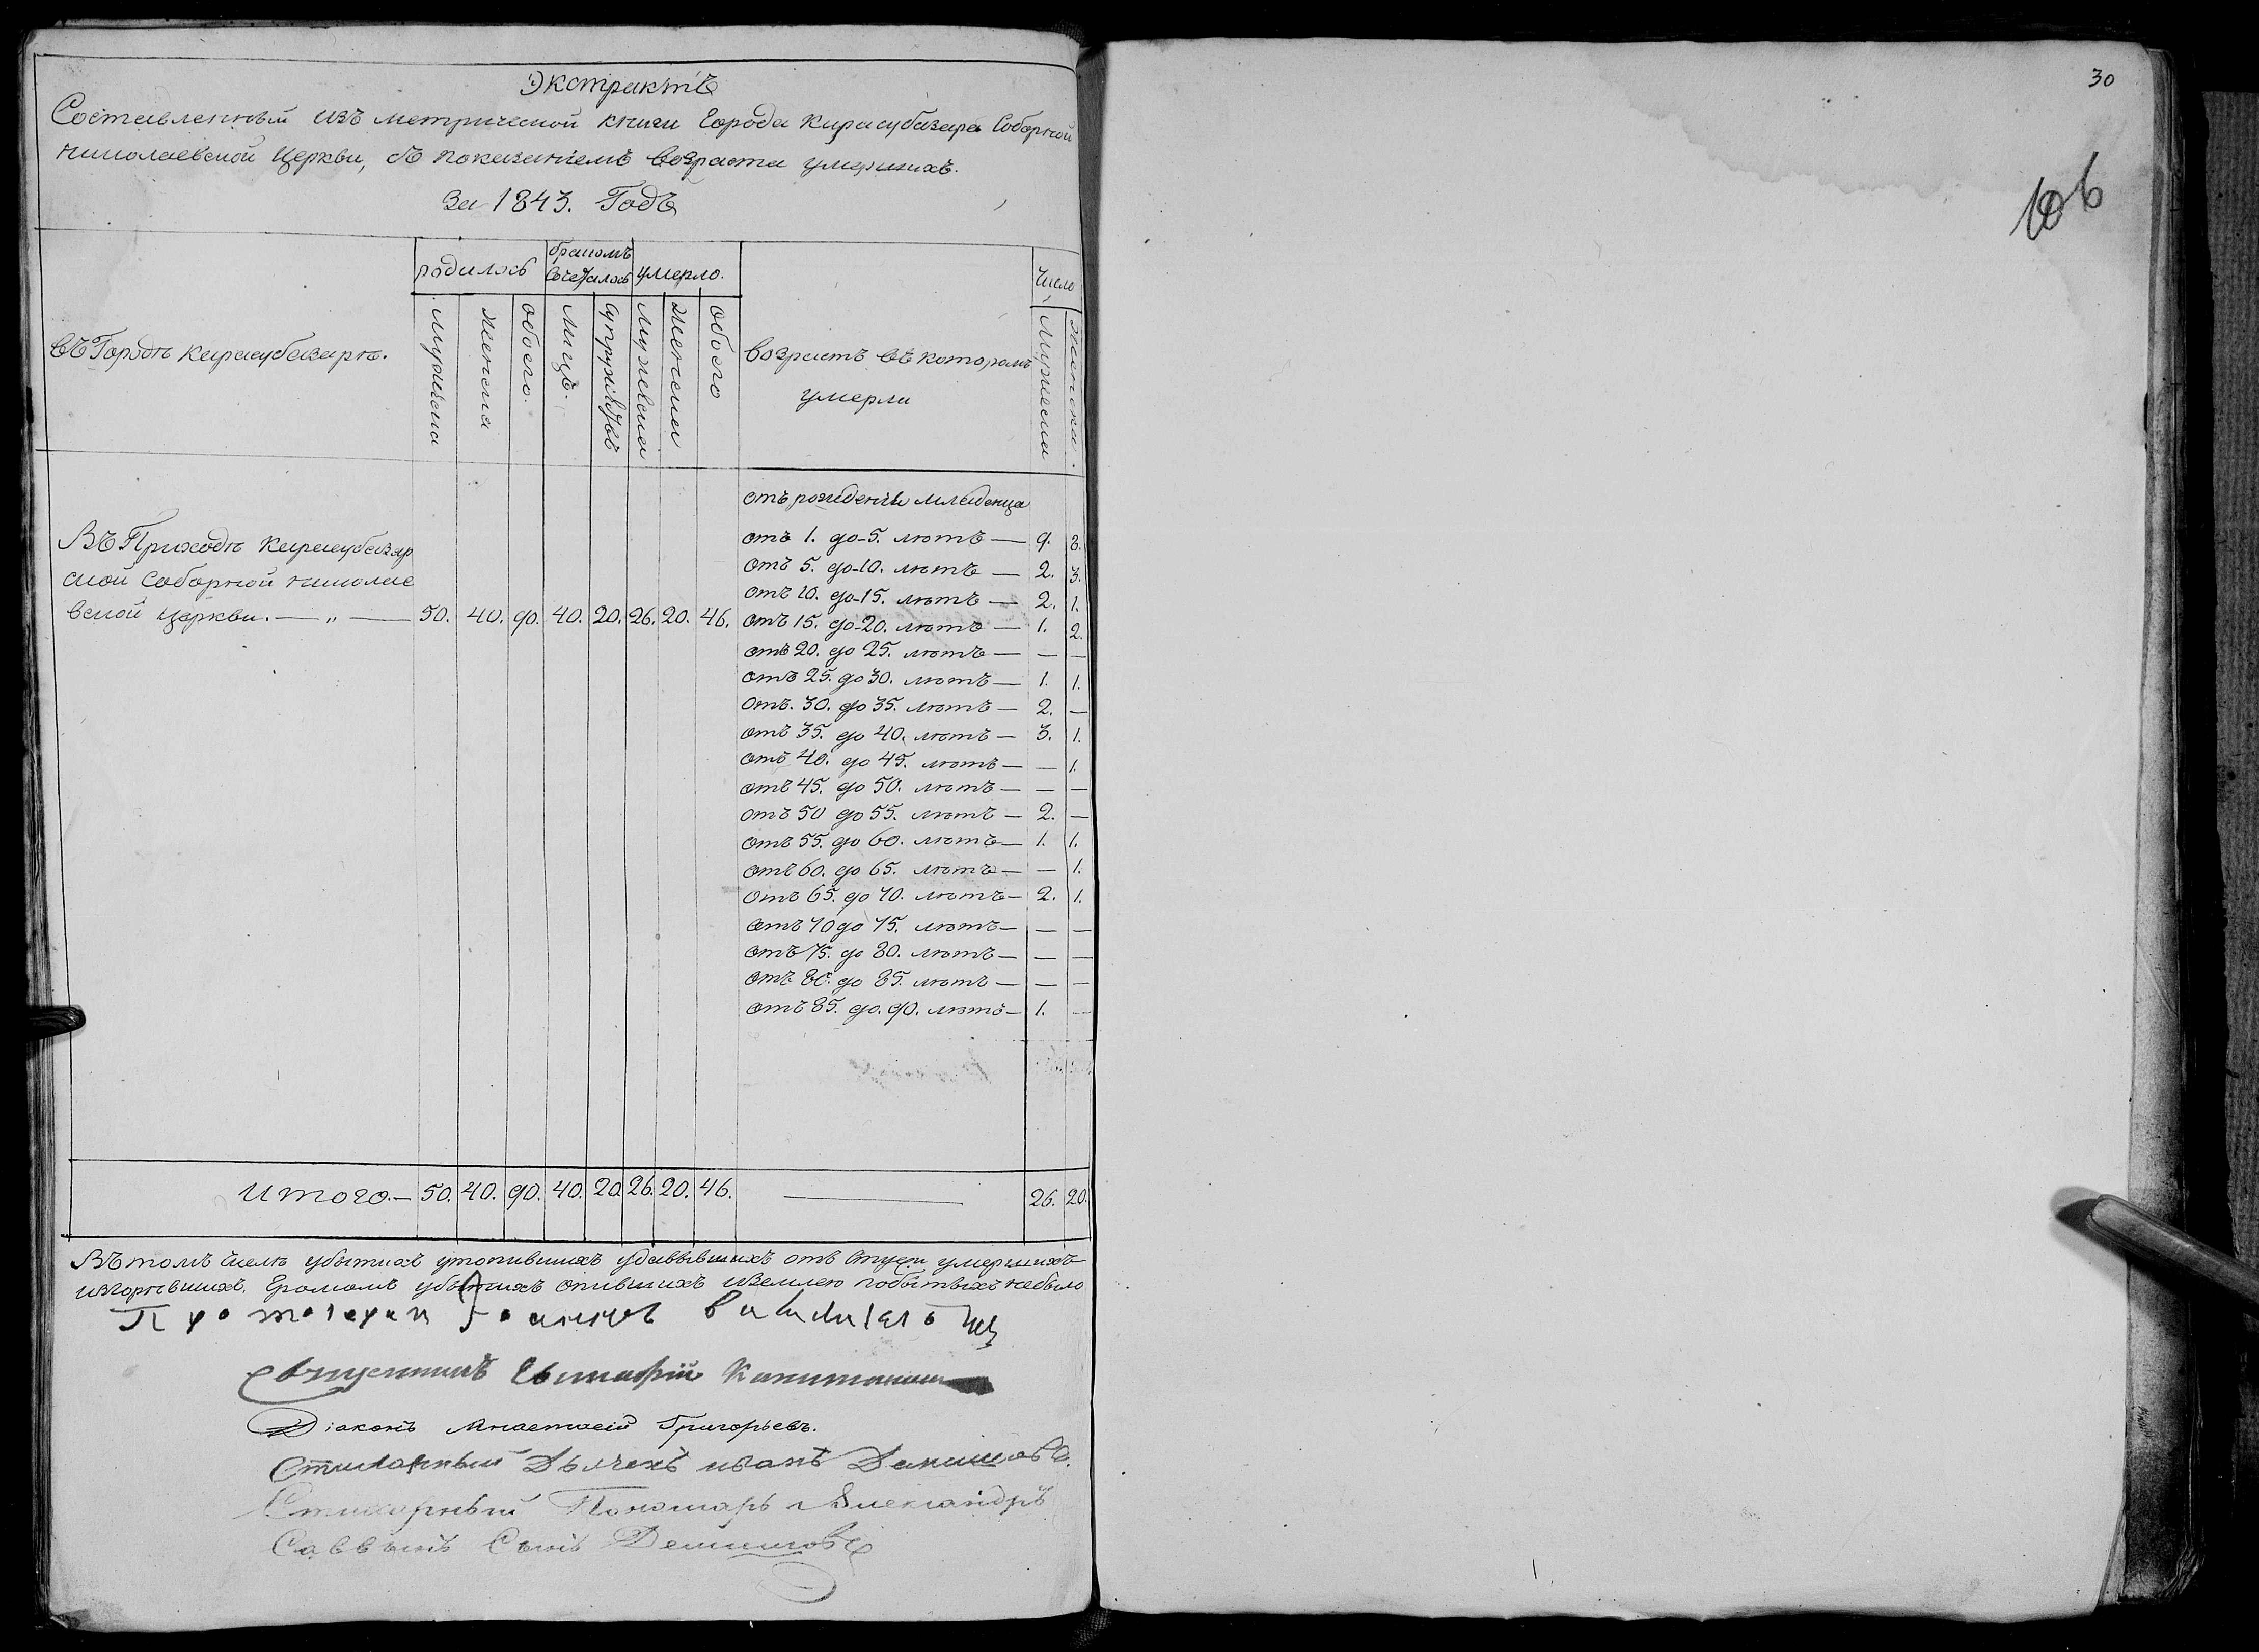 Экстрактъ
Составленный изъ метрической книги Города Карасубазара Соборной
Николаевской Церкви, съ показаніемъ возраста умершихъ.
За 1843. Годъ
родилось бракомъ сочеталось умерло. Число
въ Городѣ Карасубазарѣ. мужеска женска обоего. лицъ. супружествъ мужеска женска обоего возрастъ въ которомъ умерли мужеска женска.
отъ рожденія младенца
Въ Приходѣ Карасубазар
ской Соборной Николае
вской Церкви. — „ — 50. 40. 90. 40. 20. 26. 20. 46.
отъ 1. до 5. лѣтъ — 9. 8.
отъ 5. до 10. лѣтъ — 2. 3.
отъ 10. до 15. лѣтъ — 2. 1.
отъ 15. до 20. лѣтъ — 1. 2.
отъ 20. до 25. лѣтъ — — —
отъ 25. до 30. лѣтъ — 1. 1.
отъ. 30. до 35. лѣтъ — 2. —
отъ 35. до 40. лѣтъ — 3. 1.
отъ 40. до 45. лѣтъ — — 1.
отъ 45. до 50. лѣтъ — — —
отъ 50 до 55. лѣтъ — 2. —
отъ 55. до 60. лѣтъ — 1. 1.
отъ 60. до 65. лѣтъ — — 1.
отъ 65. до 70. лѣтъ — 2. 1.
отъ 70 до 75. лѣтъ — — —
отъ 75. до 80. лѣтъ — — —
отъ 80. до 85. лѣтъ — — —
отъ 85. до. 90. лѣтъ — 1. —
Итого. — 50. 40. 90. 40. 20. 26. 20. 46. — 26. 20.
Въ томъ числѣ убитыхъ утопившихъ удавившихъ отъ стужи умершихъ
изгорѣвшихъ. Громомъ убитыхъ опившихъ землею побытыхъ небыло
Протоіерей
Священникъ
Діаконъ Анастасій Григорьевъ.
Стихарный Дьячекъ Иванъ
Стихарный Пономарь Александръ
Саввинъ Сынъ
30